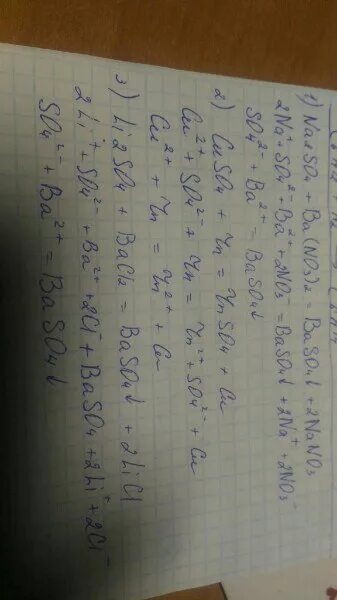 1) Na2SO4 + Ba(NO3)2 = BaSO4↓ + 2NaNO3
2Na⁺ + SO4²⁻ Ba²⁺ + 2NO3⁻ = BaSO4↓ + 2Na⁺ + 2NO3⁻
SO4²⁻ + Ba²⁺ = BaSO4↓
2) CuSO4 + Zn = ZnSO4 + Cu
Cu²⁺ + SO4²⁻ + Zn = Zn²⁺ + SO4²⁻ + Cu
Cu²⁺ + Zn = Zn²⁺ + Cu
3) Li2SO4 + BaCl2 = BaSO4↓ + 2LiCl
2Li⁺ + SO4²⁻ + Ba²⁺ + 2Cl⁻ + BaSO4 + 2Li⁺ + 2Cl⁻
SO4²⁻ + Ba²⁺ = BaSO4↓